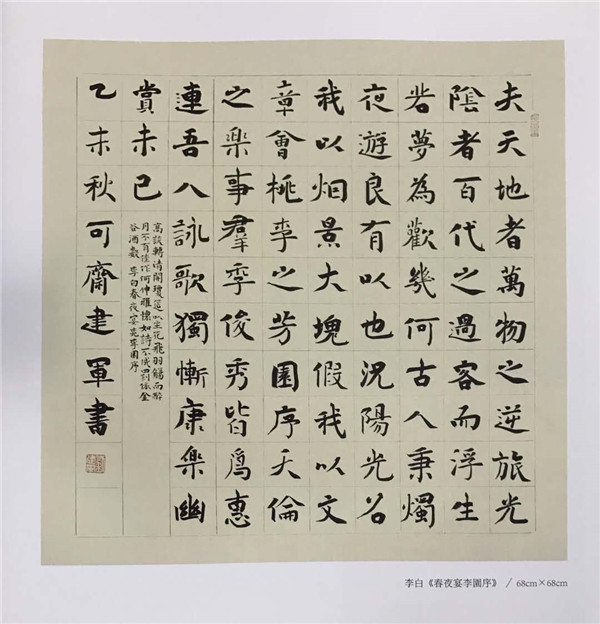 夫天地者萬物之逆旅光
陰者百代之過客而浮生
若夢為歡幾何古人秉燭
夜遊良有以也況陽光召
我以烟景大塊假我以文
章會桃李之芳園序天倫
之樂事羣季俊秀皆爲惠
連吾人詠歌獨慚康樂幽
賞未已
高談轉清開瓊筵以坐花飛羽觴而醉
月不有佳作何伸雅懷如詩不成罰依金
谷酒數 李白春夜宴李園序
乙未秋可齋建軍書
李白《春夜宴李園序》 / 68cm×68cm